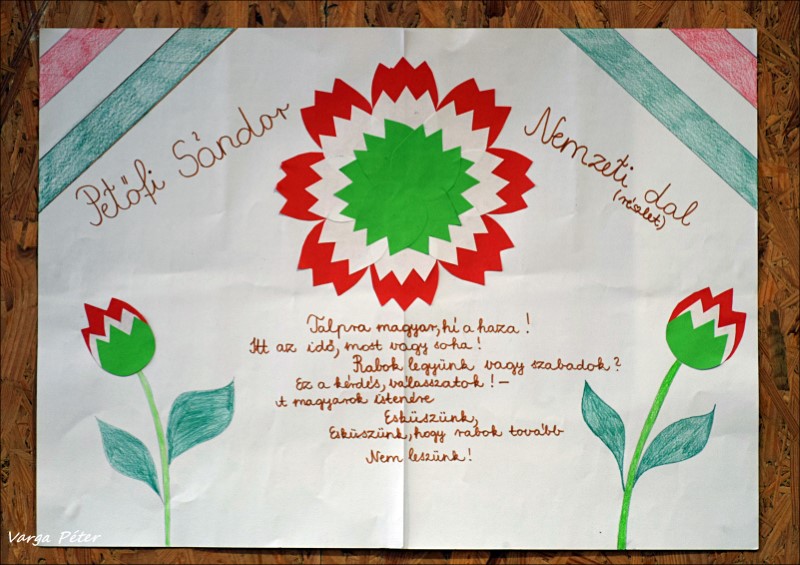 Petőfi Sándor
Nemzeti dal
(részlet)
Talpra magyar, hí a haza!
Itt az idő, most vagy soha!
Rabok legyünk vagy szabadok?
Ez a kérdés, válasszatok! –
A magyarok istenére
Esküszünk,
Esküszünk, hogy rabok tovább
Nem leszünk!
Varga Péter